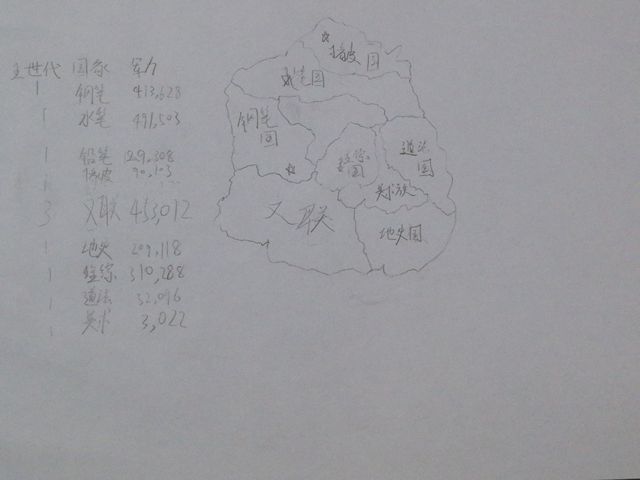 主世代 国家 军力
1 钢笔 413,628
1 水笔 491,503
1 铅笔 129,308
1 橡皮 90,103
3 又联 453,012
1 地失 209,118
1 310,288
1 道法 32,096
1 美术 3,022
橡皮国
水笔国
钢笔国
道法国
国
美术族
又联
地失国